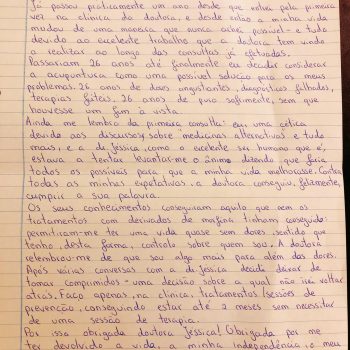 Já passou praticamente um ano desde que entrei pela primeira
vez na clínica da doutora, e desde então a minha vida
mudou de uma maneira que nunca achei possível - e tudo
devido ao excelente trabalho que a doutora tem vindo
a realizar ao longo das consultas já efetuadas.
Passariam 26 anos até finalmente eu decidir considerar
a acupuntura como uma possível solução para os meus
problemas. 26 anos de dores angustiantes, diagnósticos falhados,
terapias feitas, 26 anos de puro sofrimento, sem que
houvesse um fim à vista.
Ainda me lembro da primeira consulta: eu, uma cética
devido aos discursos sobre "medicinas alternativas" e tudo
mais, e a dr. Jéssica, como o excelente ser humano que é,
estava a tentar levantar-me o ânimo dizendo que faria
todos os possíveis para que a minha vida melhorasse. Contra
todas as minhas expetativas, a doutora conseguiu, felizmente,
cumprir a sua palavra.
Os seus conhecimentos conseguiram aquilo que nem os
tratamentos com derivados de morfina tinham conseguido:
permitiram-me ter uma vida quase sem dores, sentido que
tenho, desta forma, controlo sobre quem sou. A doutora
relembrou-me de que sou algo mais para além das dores.
Após várias conversas com a dr. Jéssica decidi deixar de
tomar comprimidos - uma decisão sobre a qual não irei voltar
atrás. Faço apenas, na clínica, tratamentos/sessões de
prevenção, conseguindo estar até 2 meses sem necessitar
de uma sessão de terapia.
Por isso obrigada doutora Jéssica! Obrigada por me
ter devolvido a vida, a minha independência, o meu